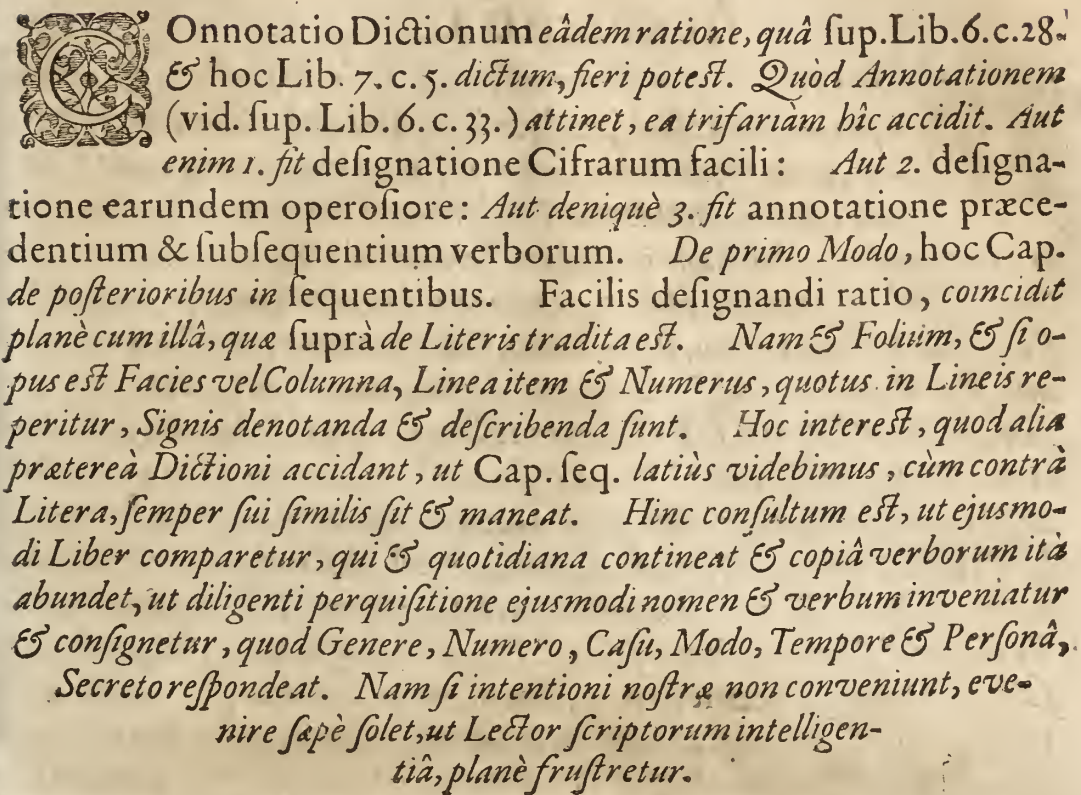 COnnotatio Dictionum eâdem ratione, quâ ſup. Lib. 6. c. 28.
& hoc Lib. 7. c. 5. dictum, fieri poteſt. Quòd Annotationem
(vid. ſup. Lib. 6. c. 33.) attinet, ea trifariàm hîc accidit. Aut
enim 1. fit deſignatione Cifrarum facili: Aut 2. deſigna-
tione earundem operoſiore: Aut deniquè 3. fit annotatione præce-
dentium & ſubſequentium verborum. De primo Modo, hoc Cap.
de poſterioribus in ſequentibus. Facilis deſignandi ratio, coincidit
planè cum illâ, quæ ſuprà de Literis tradita eſt. Nam & Folium, & ſi o-
pus eſt Facies vel Columna, Linea item & Numerus, quotus in Lineis re-
peritur, Signis denotanda & deſcribenda ſunt. Hoc intereſt, quod alia
prætereà Dictioni accidant, ut Cap. ſeq. latiùs videbimus, cùm contrà
Litera, ſemper ſui ſimilis ſit & maneat. Hinc conſultum eſt, ut ejusmo-
di Liber comparetur, qui & quotidiana contineat & copiâ verborum ità
abundet, ut diligenti perquiſitione ejusmodi nomen & verbum inveniatur
& conſignetur, quod Genere, Numero, Caſu, Modo, Tempore & Perſonâ,
Secreto reſpondeat. Nam ſi intentioni noſtræ non conveniunt, eve-
nire ſæpè ſolet, ut Lector ſcriptorum intelligen-
tiâ, planè fruſtretur.